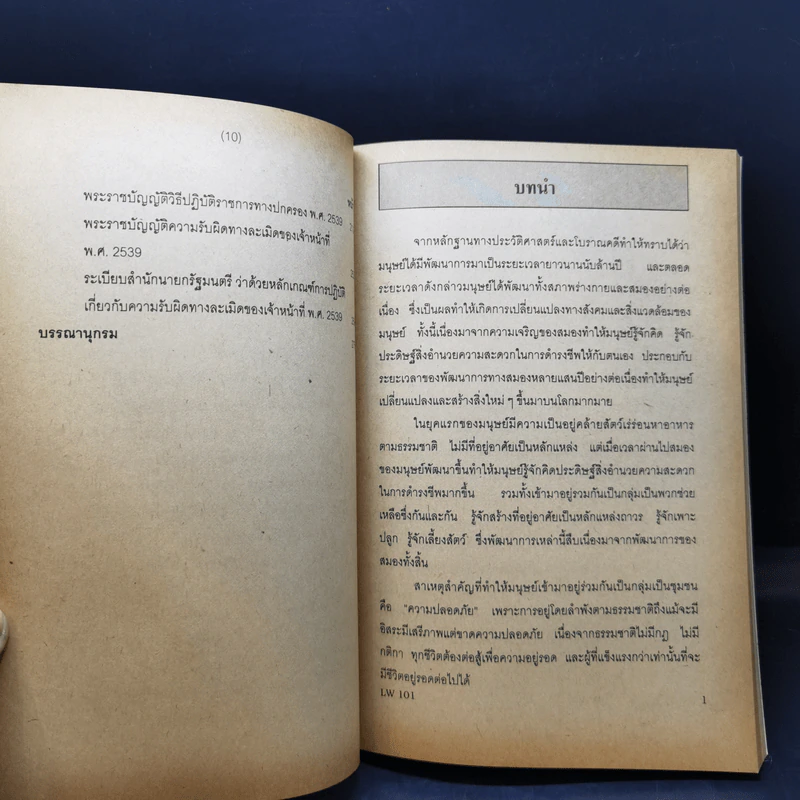 (10)
พระราชบัญญัติวิธีปฏิบัติราชการทางปกครอง พ.ศ. 2539
พระราชบัญญัติความรับผิดทางละเมิดของเจ้าหน้าที่
พ.ศ. 2539
ระเบียบสำนักนายกรัฐมนตรี ว่าด้วยหลักเกณฑ์การปฏิบัติ
เกี่ยวกับความรับผิดทางละเมิดของเจ้าหน้าที่ พ.ศ. 2539
บรรณานุกรม
บทนำ
จากหลักฐานทางประวัติศาสตร์และโบราณคดีทำให้ทราบได้ว่า
มนุษย์ได้มีพัฒนาการมาเป็นระยะเวลายาวนานนับล้านปี และตลอด
ระยะเวลาดังกล่าวมนุษย์ได้พัฒนาทั้งสภาพร่างกายและสมองอย่างต่อ
เนื่อง ซึ่งเป็นผลทำให้เกิดการเปลี่ยนแปลงทางสังคมและสิ่งแวดล้อมของ
มนุษย์ ทั้งนี้เนื่องมาจากความเจริญของสมองทำให้มนุษย์รู้จักคิด รู้จัก
ประดิษฐ์สิ่งอำนวยความสะดวกในการดำรงชีพให้กับตนเอง ประกอบกับ
ระยะเวลาของพัฒนาการทางสมองหลายแสนปีอย่างต่อเนื่องทำให้มนุษย์
เปลี่ยนแปลงและสร้างสิ่งใหม่ ๆ ขึ้นมาบนโลกมากมาย
ในยุคแรกของมนุษย์มีความเป็นอยู่คล้ายสัตว์เร่ร่อนหาอาหาร
ตามธรรมชาติ ไม่มีที่อยู่อาศัยเป็นหลักแหล่ง แต่เมื่อเวลาผ่านไปสมอง
ของมนุษย์พัฒนาขึ้นทำให้มนุษย์รู้จักคิดประดิษฐ์สิ่งอำนวยความสะดวก
ในการดำรงชีพมากขึ้น รวมทั้งเข้ามาอยู่รวมกันเป็นกลุ่มเป็นพวกช่วย
เหลือซึ่งกันและกัน รู้จักสร้างที่อยู่อาศัยเป็นหลักแหล่งถาวร รู้จักเพาะ
ปลูก รู้จักเลี้ยงสัตว์ ซึ่งพัฒนาการเหล่านี้สืบเนื่องมาจากพัฒนาการของ
สมองทั้งสิ้น
สาเหตุสำคัญที่ทำให้มนุษย์เข้ามาอยู่ร่วมกันเป็นกลุ่มเป็นชุมชน
คือ "ความปลอดภัย" เพราะการอยู่โดยลำพังตามธรรมชาติถึงแม้จะมี
อิสระมีเสรีภาพแต่ขาดความปลอดภัย เนื่องจากธรรมชาติไม่มีกฎ ไม่มี
กติกา ทุกชีวิตต้องต่อสู้เพื่อความอยู่รอด และผู้ที่แข็งแรงกว่าเท่านั้นที่จะ
มีชีวิตอยู่รอดต่อไปได้
LW 101
1